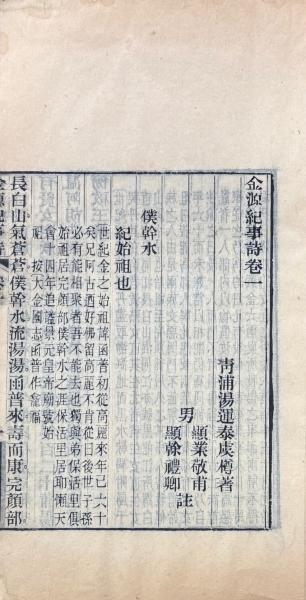 金源紀事詩卷一
青浦湯運泰虞樽著
男
顯業敬甫
顯榦禮卿
註
僕幹水
紀始祖也
世紀金之始祖諱函普初從高麗來年已六十
矣兄阿古迺好佛留高麗不肯從曰後世子孫
必有能相聚者吾不能去也獨與弟保活里俱
始祖居完顏部僕幹水之涯保活里居耶瀬天
會十四年追諡景元皇帝廟號始
祖 按大金國志函普作龕福
長白山氣蒼蒼僕幹水流湯湯函普來壽而康完顏部
金源紀事詩